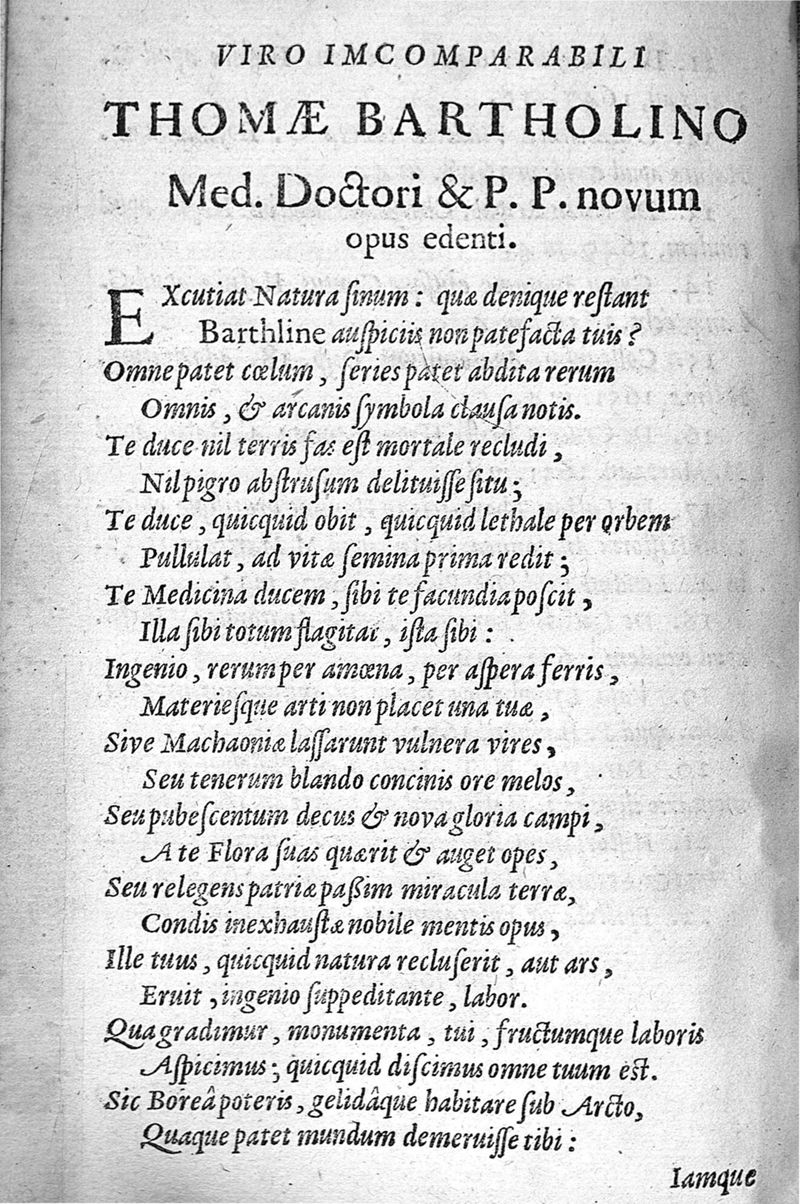 VIRO IMCOMPARABILI
THOMÆ BARTHOLINO
Med. Doctori & P. P. novum
opus edenti.
EXcutiat Natura ſinum : quæ denique reſtant
Barthline auſpiciis non patefacta tuis ?
Omne patet cœlum , ſeries patet abdita rerum
Omnis , & arcanis ſymbola clauſa notis.
Te duce nil terris fas eſt mortale recludi ,
Nil pigro abſtruſum delituiſſe ſitu ;
Te duce , quicquid obit , quicquid lethale per orbem
Pullulat , ad vitæ ſemina prima redit ;
Te Medicina ducem , ſibi te facundia poſcit ,
Illa ſibi totum flagitat , iſta ſibi :
Ingenio , rerum per amœna , per aſpera ferris ,
Materieſque arti non placet una tuæ ,
Sive Machaoniæ laſſarunt vulnera vires ,
Seu tenerum blando concinis ore melos ,
Seu pubeſcentum decus & nova gloria campi ,
A te Flora ſuas quærit & auget opes ,
Seu relegens patriæ paßim miracula terræ,
Condis inexhauſtæ nobile mentis opus ,
Ille tuus , quicquid natura recluſerit , aut ars ,
Eruit , ingenio ſuppeditante , labor.
Qua gradimur , monumenta , tui , fructumque laboris
Aſpicimus ; quicquid diſcimus omne tuum eſt.
Sic Boreâ poteris , gelidâque habitare ſub Arcto,
Quaque patet mundum demeruiſſe tibi :
Iamque